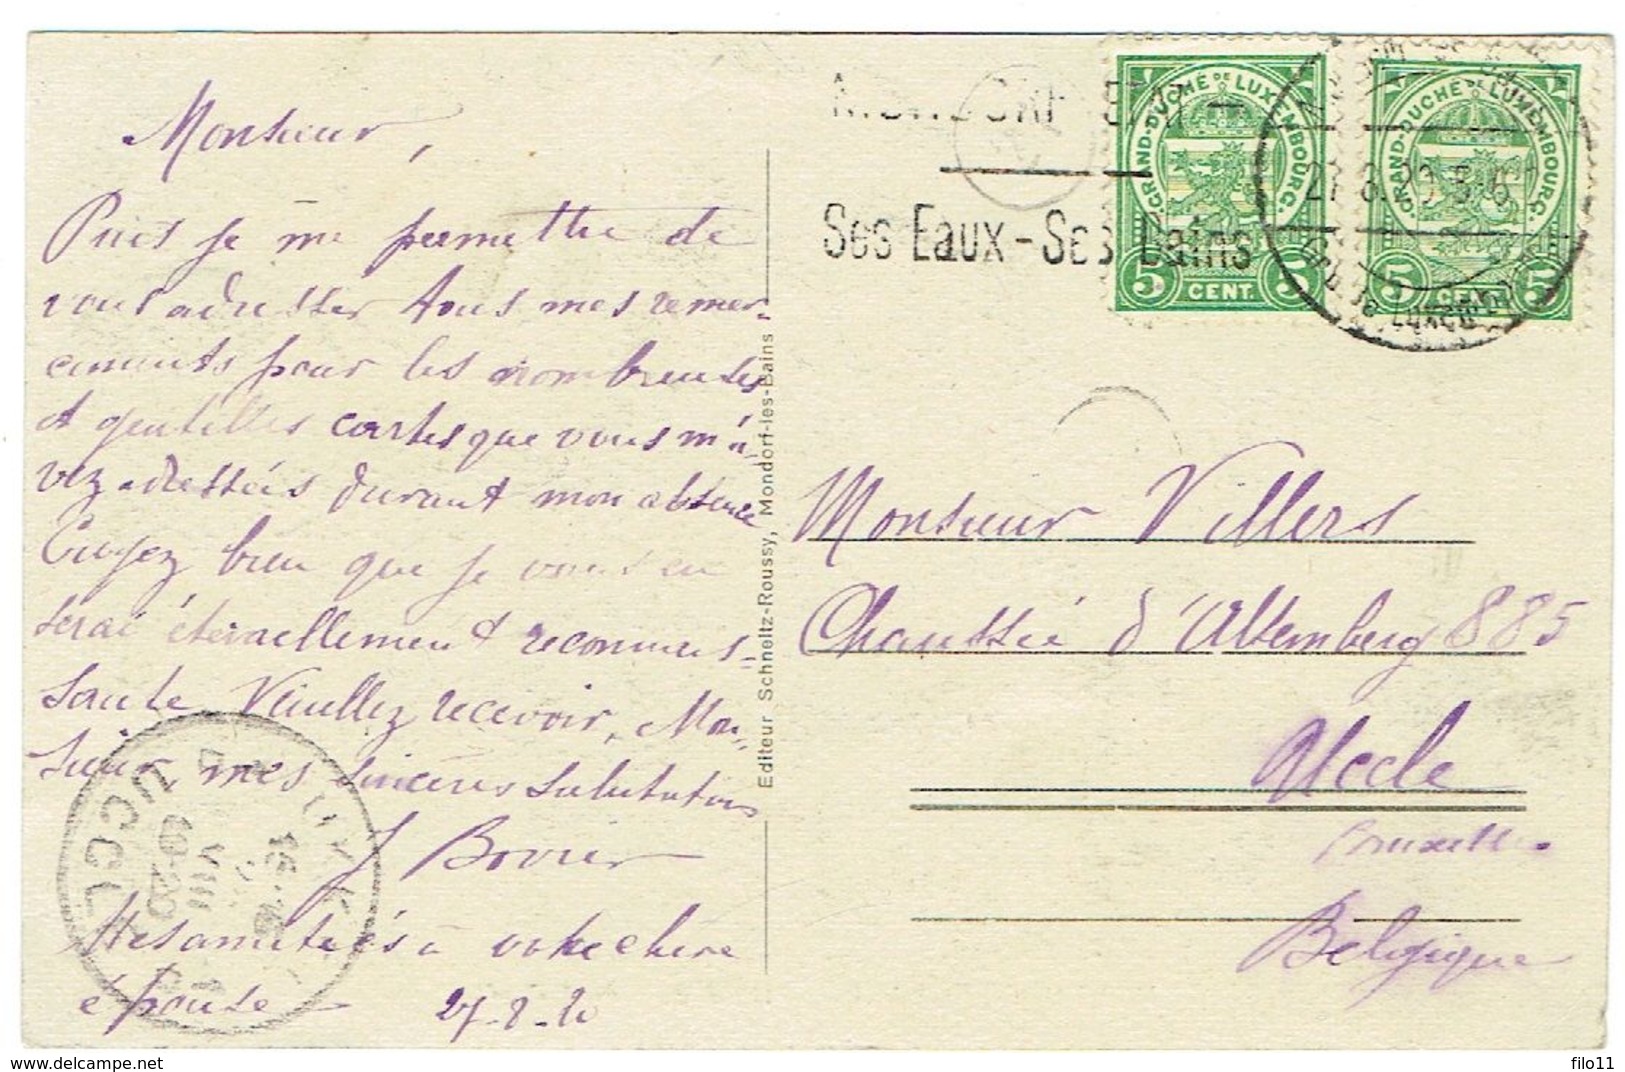 Monsieur,
Puis je me permettre de
vous adresser tous mes remer-
ciments pour les nombreuses
et gentilles cartes que vous m'a-
vez adressées durant mon absence
Croyez bien que je vous en
serai éternellement reconnais-
sante. Veuillez recevoir, Mon-
sieur, mes sincères salutations
J Bovier
Mes amitiés à votre chère
épouse 27-8-20
Editeur Schneltz-Roussy, Mondorf-les-Bains
MONDORF ETAT -
Ses Eaux - Ses Bains
GRAND-DUCHÉ DE LUXEMBOURG.
5 CENT. 5
GRAND-DUCHÉ DE LUXEMBOURG.
5 CENT. 5
27.8.20.5-6
Monsieur Villers
Chaussée d'Alsemberg 885
Uccle
Bruxelles
Belgique
UCCLE
VIII
filo11